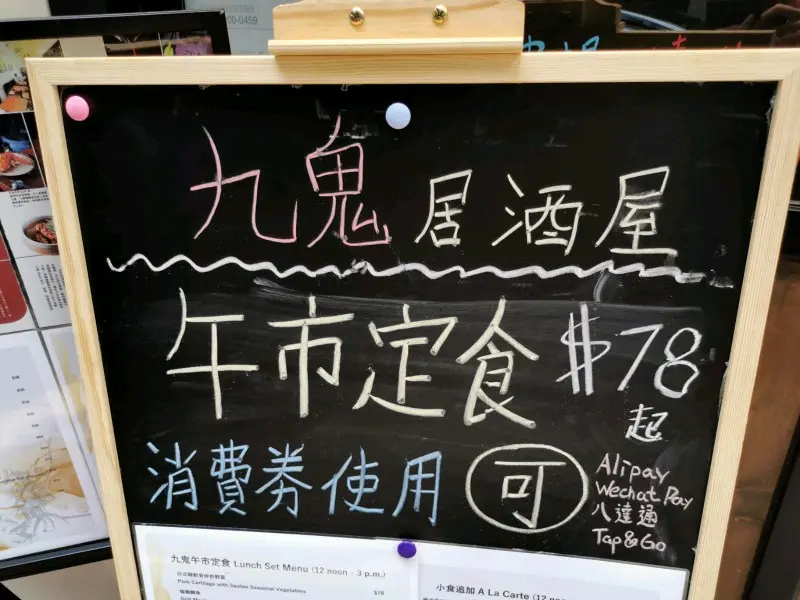 00-0459
九鬼居酒屋
午市定食 $78
起
消費券使用 可
Alipay
Wechat Pay
八達通
Tap&Go
九鬼午市定食 Lunch Set Menu (12 noon - 3 p.m.)
Pork Cartilage with Sezhee Seasonal Vegetables
$78
小食追加 A La Carte (12 noon